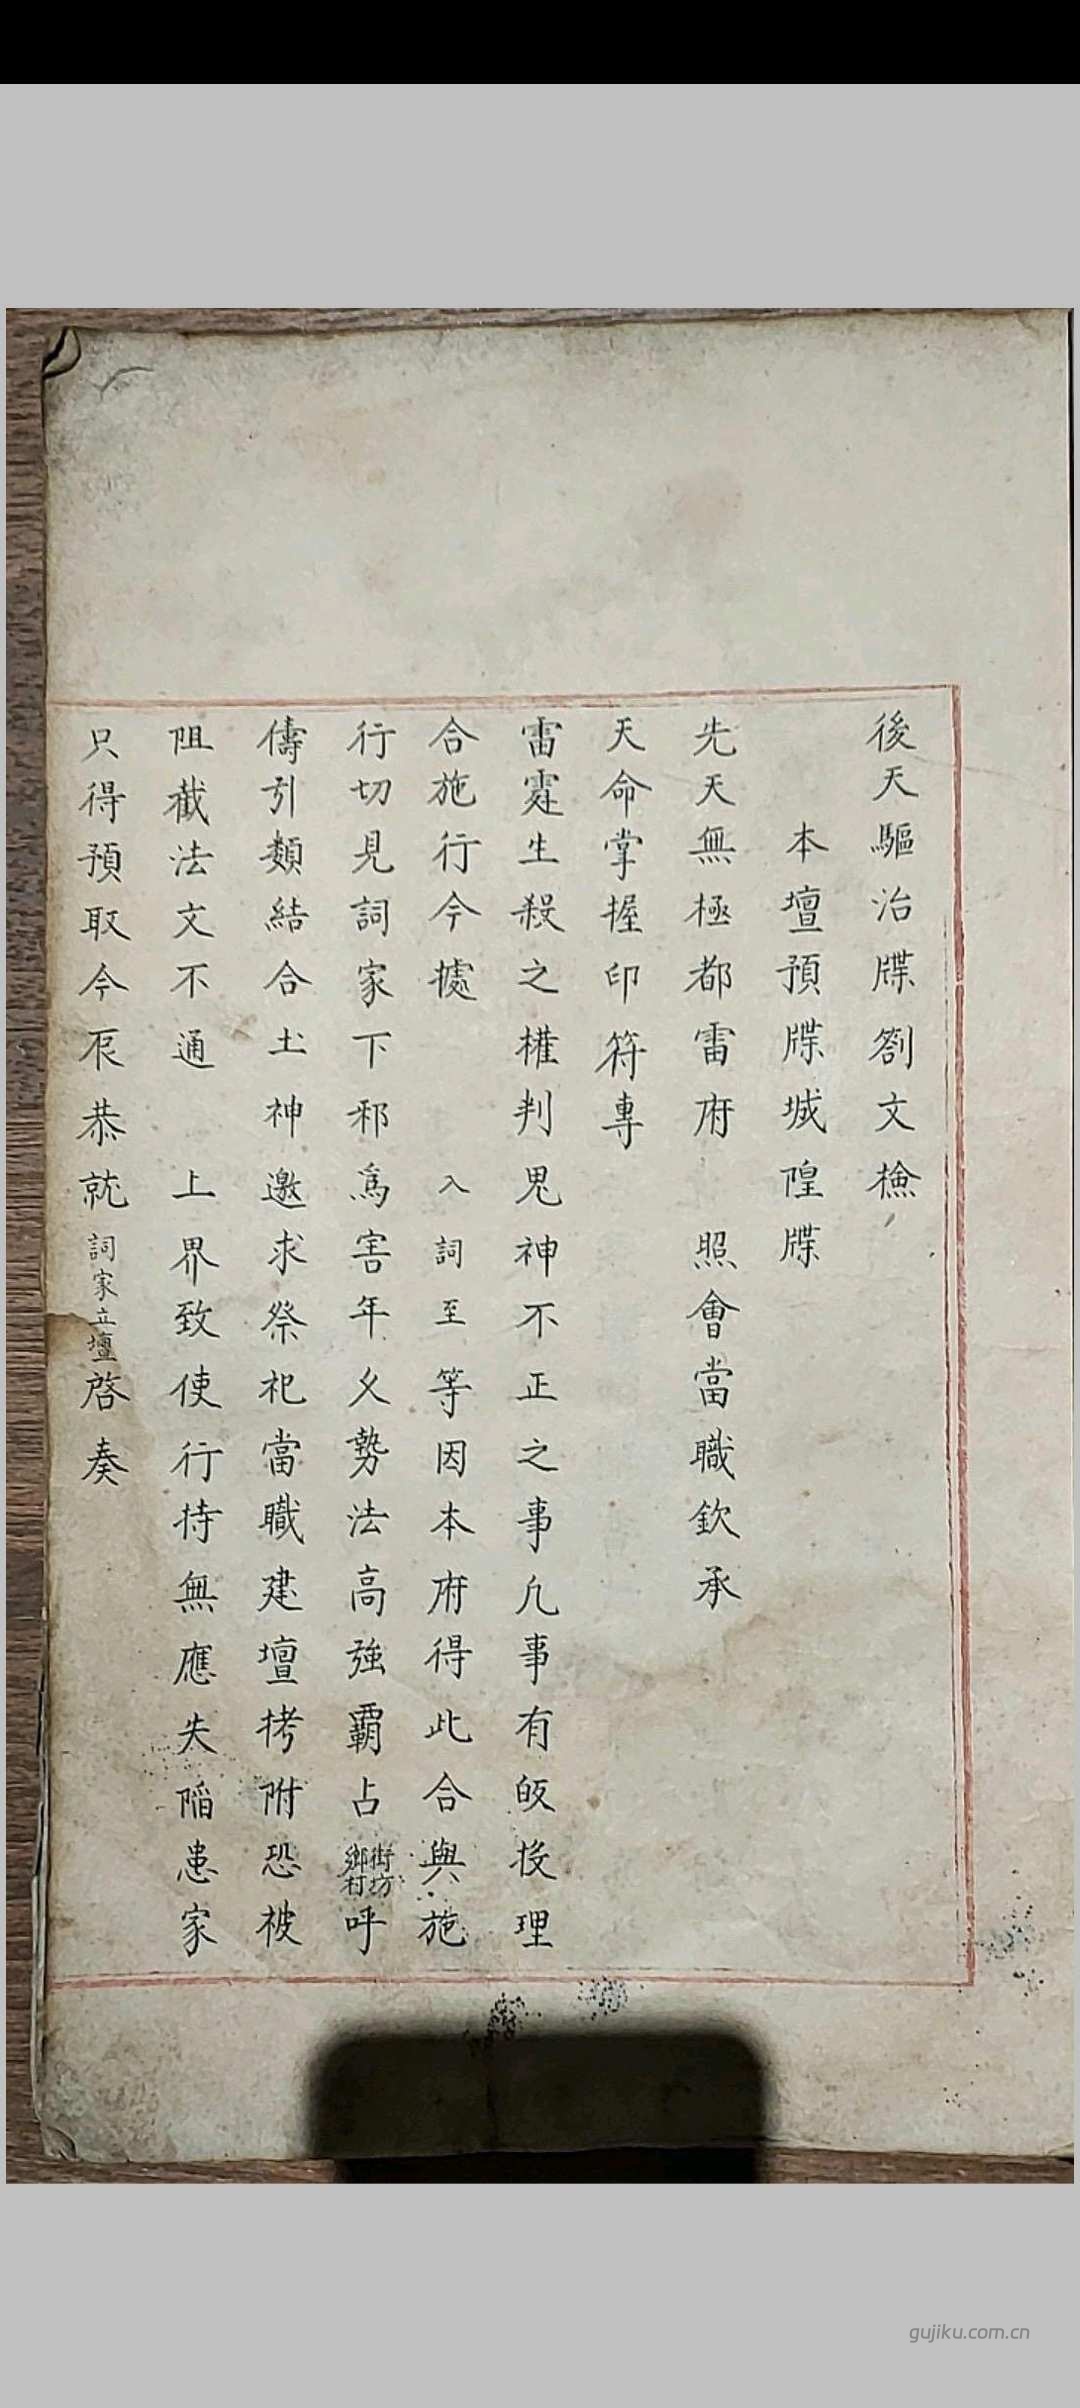 後天驅治牒劄文檢
本壇預牒城隍牒
先天無極都雷府 照會當職欽承
天命掌握印符專
雷霆生殺之權判鬼神不正之事凡事有皈投理
合施行今據 入詞至等因本府得此合與施
行切見詞家下邪為害年久勢法高強霸占街坊鄉村呼
儔引類結合土神邀求祭祀當職建壇拷附恐被
阻截法文不通 上界致使行持無應失陷患家
只得預取今 恭就詞家立壇啓奏
gujiku.com.cn